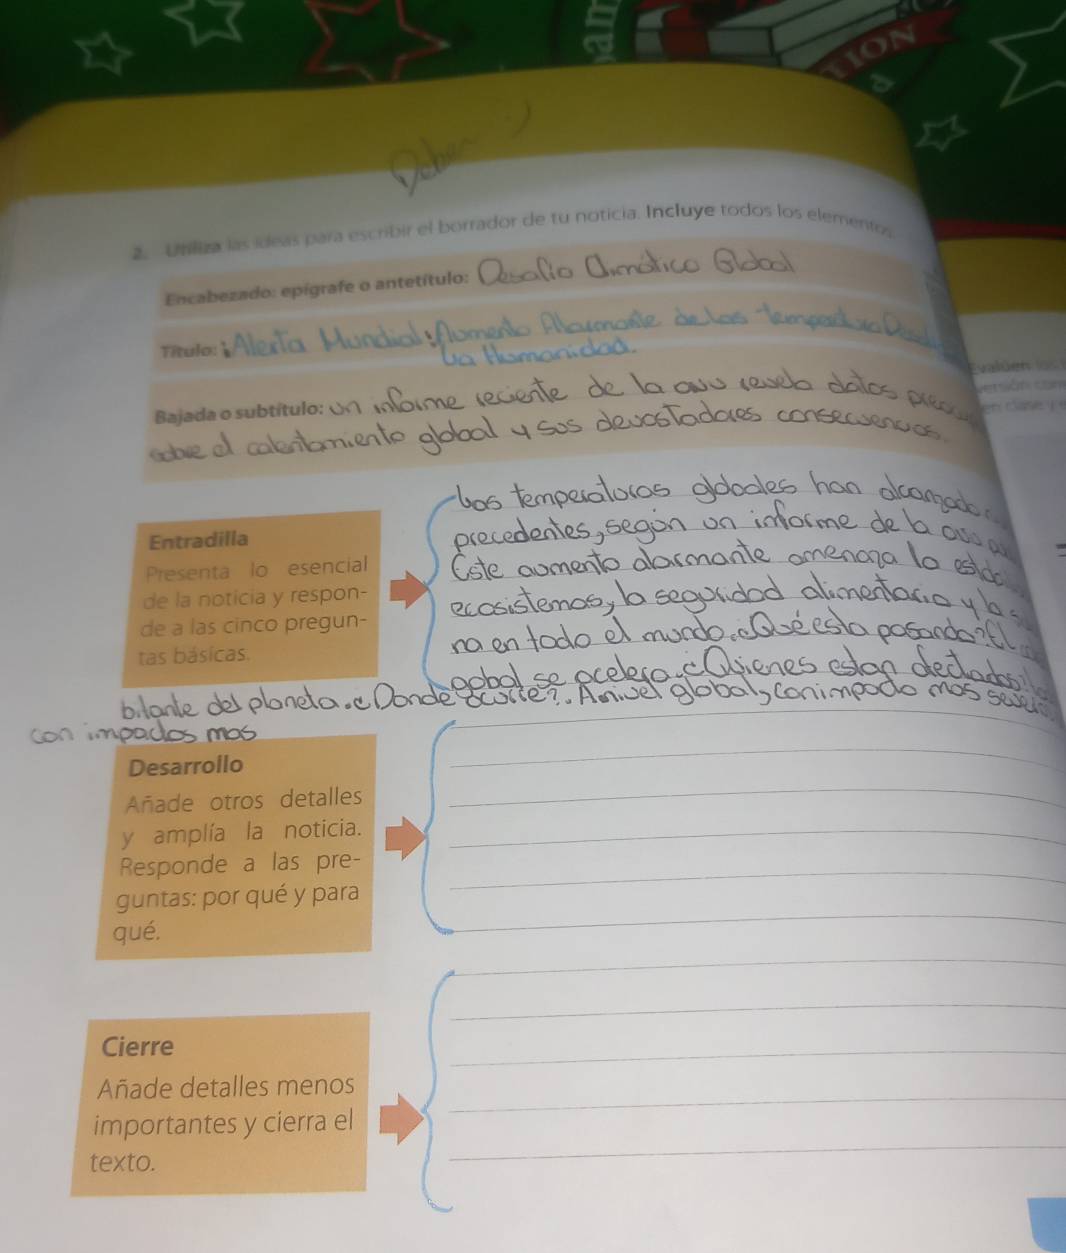 am
TION
d
Deber :)
2. Utiliza las ideas para escribir el borrador de tu noticia. Incluye todos los elementos.
Encabezado: epígrafe o antetítulo: Desafio Climático Global
Título: ¡Alerta Mundial: Aumento Alarmante de las temperatura
La Humanidad.
Evalúen los
versión con
en clase y
Bajada o subtítulo: un informe reciente de la revela datos
sobre el calentamiento global y sus devastadores
Entradilla
Presenta lo esencial
de la noticia y respon-
de a las cinco pregun-
tas básicas.
Las temperaturas globales han alcanzado
precedentes, según un informe de la
Este aumento alarmante amenaza la
ecosistemas, la seguridad alimentaria y la
na en todo el mundo. ¿Qué esta pasando? El
gobal se acelera. ¿Quienes estan
bitante del planeta. ¿Donde ocurre?. A nivel global, con impado mas
con impados mas
Desarrollo
Añade otros detalles
y amplía la noticia.
Responde a las pre-
guntas: por qué y para
qué.
Cierre
Añade detalles menos
importantes y cierra el
texto.